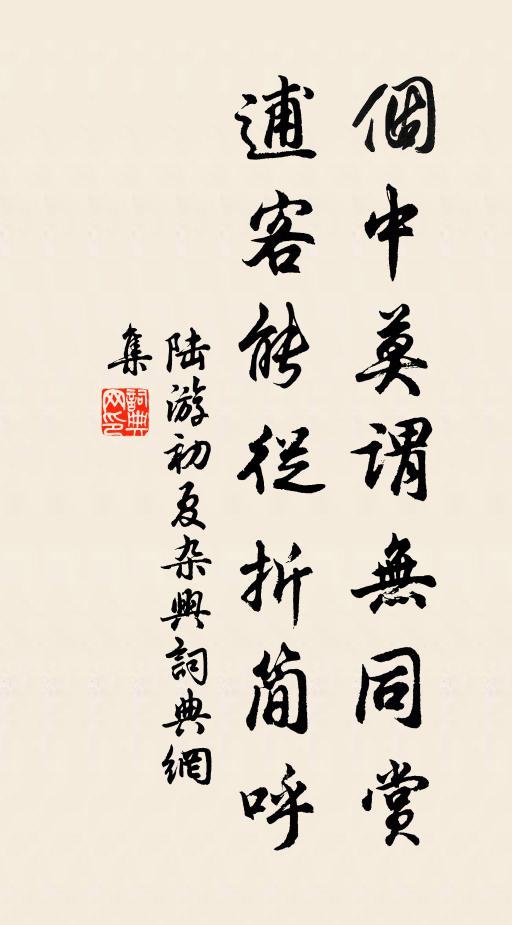 個中莫謂無同賞
逋客能從折簡呼
陸游初夏杂興詞典網
集
詞典网印